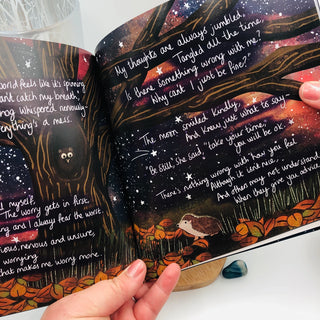 World feels like it's spinning
and catch my breath,"
hog whispered nervously
everything's a mess.
myself,
The worry gets in first.
and I always fear the worst.
nervous and unsure,
worrying
that makes me worry more.
My thoughts are always jumbled,
Tangled all the time,
Is there something wrong with me?
Why can't I just be fine?"
The moon smiled kindly,
And knew just what to say –
"Be still," she said, "take your time,
You will be ok.
There's nothing wrong with how you feel
Although it isn't nice,
And others may not understand
When they give you advice